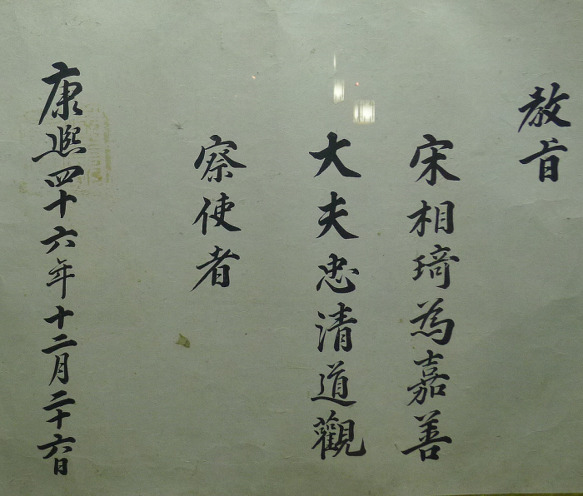 教旨
宋相琦為嘉善
大夫忠清道觀
察使者
康熙四十六年十二月二十六日